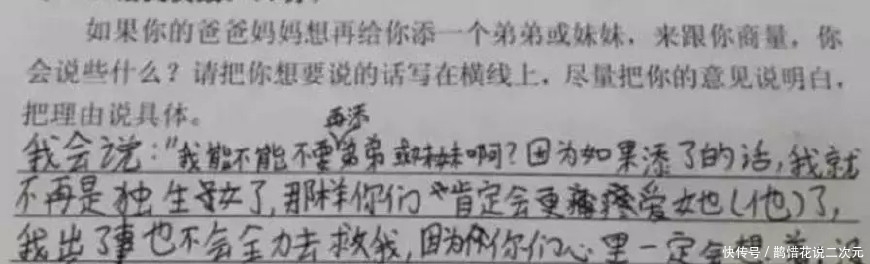 如果你的爸爸妈妈想再给你添一个弟弟或妹妹，来跟你商量，你
会说些什么？请把你想要说的话写在横线上，尽量把你的意见说明白，
把理由说具体。
再添
我会说："我能不能不要弟弟或妹妹啊？因为如果添了的话，我就
不再是独生子女了，那样你们肯定会更疼爱她(他)了，
我出了事也不会全力去救我，因为你们心里一定会
快传号/鹊惜花说二次元